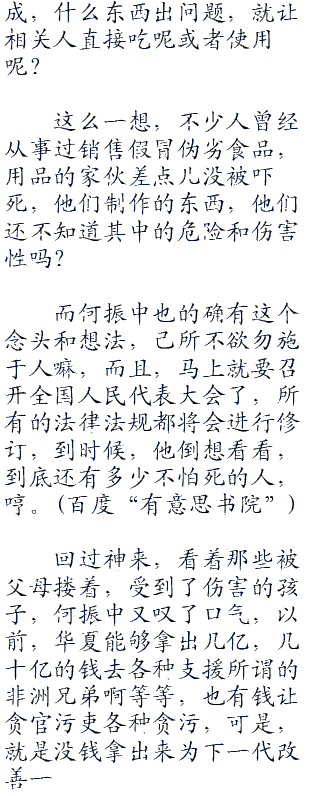 成，什么东西出问题，就让
相关人直接吃呢或者使用
呢？
这么一想，不少人曾经
从事过销售假冒伪劣食品，
用品的家伙差点儿没被吓
死，他们制作的东西，他们
还不知道其中的危险和伤害
性吗？
而何振中也的确有这个
念头和想法，己所不欲勿施
于人嘛，而且，马上就要召
开全国人民代表大会了，所
有的法律法规都将会进行修
订，到时候，他倒想看看，
到底还有多少不怕死的人，
哼。(百度“有意思书院”)
回过神来，看着那些被
父母搂着，受到了伤害的孩
子，何振中又叹了口气，以
前，华夏能够拿出几亿，几
十亿的钱去各种支援所谓的
非洲兄弟啊等等，也有钱让
贪官污吏各种贪污，可是，
就是没钱拿出来为下一代改
善一